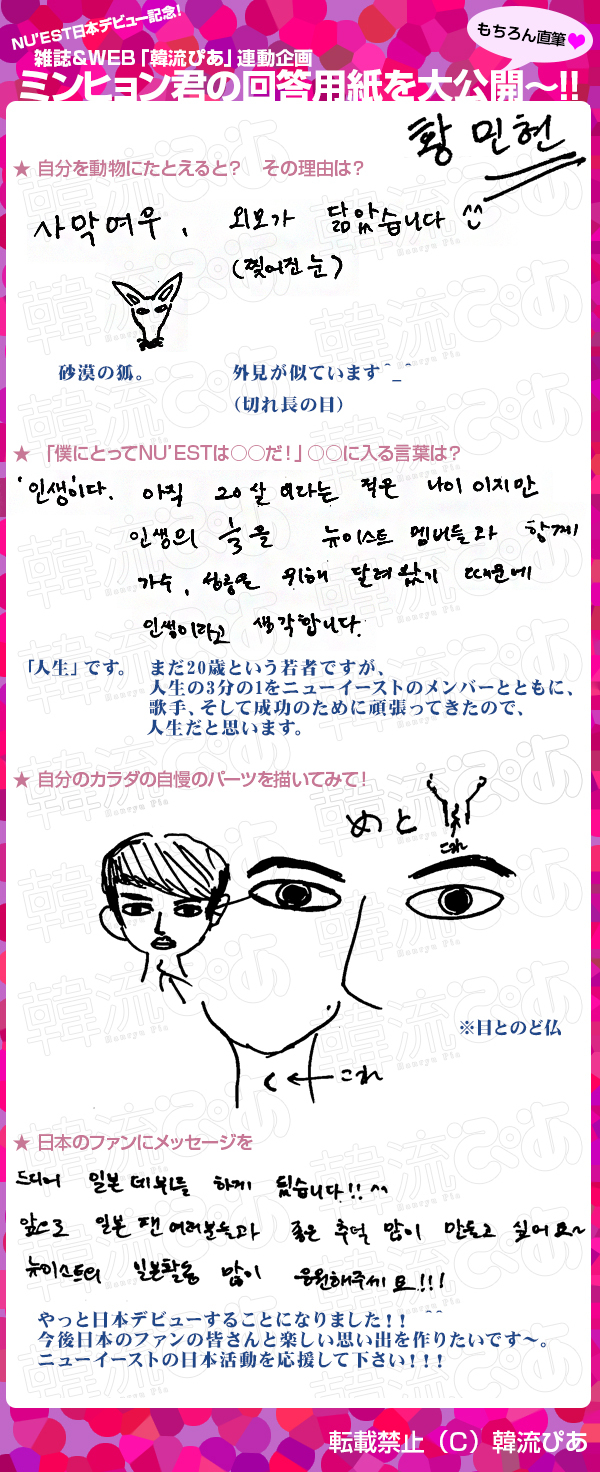 NU'EST日本デビュー記念!
雑誌&WEB「韓流ぴあ」連動企画
もちろん直筆
ミンヒョン君の回答用紙を大公開〜!!
황 민현
★ 自分を動物にたとえると? その理由は?
사막여우, 외모가 닮았습니다 ^^
(찢어진 눈)
砂漠の狐。 外見が似ています^_^
(切れ長の目)
★ 「僕にとってNU'ESTは○○だ!」○○に入る言葉は?
'인생'이다. 아직 20살 이라는 적은 나이 이지만
인생의 ⅓을 뉴이스트 멤버들과 함께
가수, 성공을 위해 달려왔기 때문에
인생이라고 생각합니다.
「人生」です。 まだ20歳という若者ですが、
人生の3分の1をニューイーストのメンバーとともに、
歌手、そして成功のために頑張ってきたので、
人生だと思います。
★ 自分のカラダの自慢のパーツを描いてみて!
めと
これ
※目とのど仏
これ
★ 日本のファンにメッセージを
드디어 일본 데뷔를 하게 됬습니다!! ^^
앞으로 일본 팬 여러분들과 좋은 추억 많이 만들고 싶어요~
뉴이스트의 일본활동 많이 응원해주세요!!!
やっと日本デビューすることになりました!! ^^
今後日本のファンの皆さんと楽しい思い出を作りたいです〜。
ニューイーストの日本活動を応援して下さい!!!
転載禁止(C)韓流ぴあ